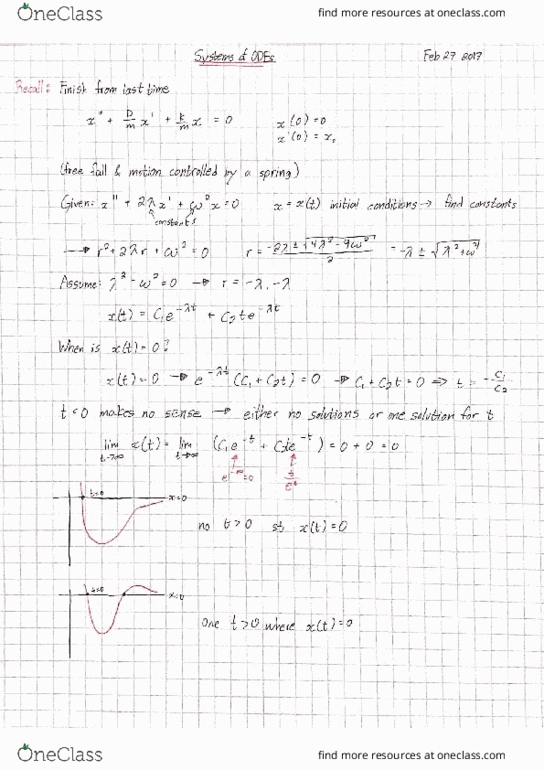 OneClass find more resources at oneclass.com
Systems of ODEs Feb 27 2017
Recall: Finish from last time
x'' + D/m x' + k/m x = 0 x(0) = 0
x'(0) = x₁
(free fall & motion controlled by a spring)
Given: x'' + 2λx' + ω²x = 0 x = x(t) initial conditions → find constants
constants
→ r² + 2λr + ω² = 0 r = -2λ ± √4λ² - 4ω² / 2 = -λ ± √λ² + ω²
Assume: λ² - ω² = 0 → r = -λ, -λ
x(t) = C₁e^-λt + C₂te^-λt
When is x(t) = 0?
x(t) = 0 → e^-λt (C₁ + C₂t) = 0 → C₁ + C₂t = 0 ⇒ t = -C₁/C₂
t < 0 makes no sense → either no solutions or one solution for t
lim t→∞ x(t) = lim t→∞ (C₁e^-t + C₂te^-t) = 0 + 0 = 0
e^-∞ = 0 t/e^t
t=0 x=0
no t > 0 st x(t) = 0
t=0 x=0
One t > 0 where x(t) = 0
OneClass find more resources at oneclass.com